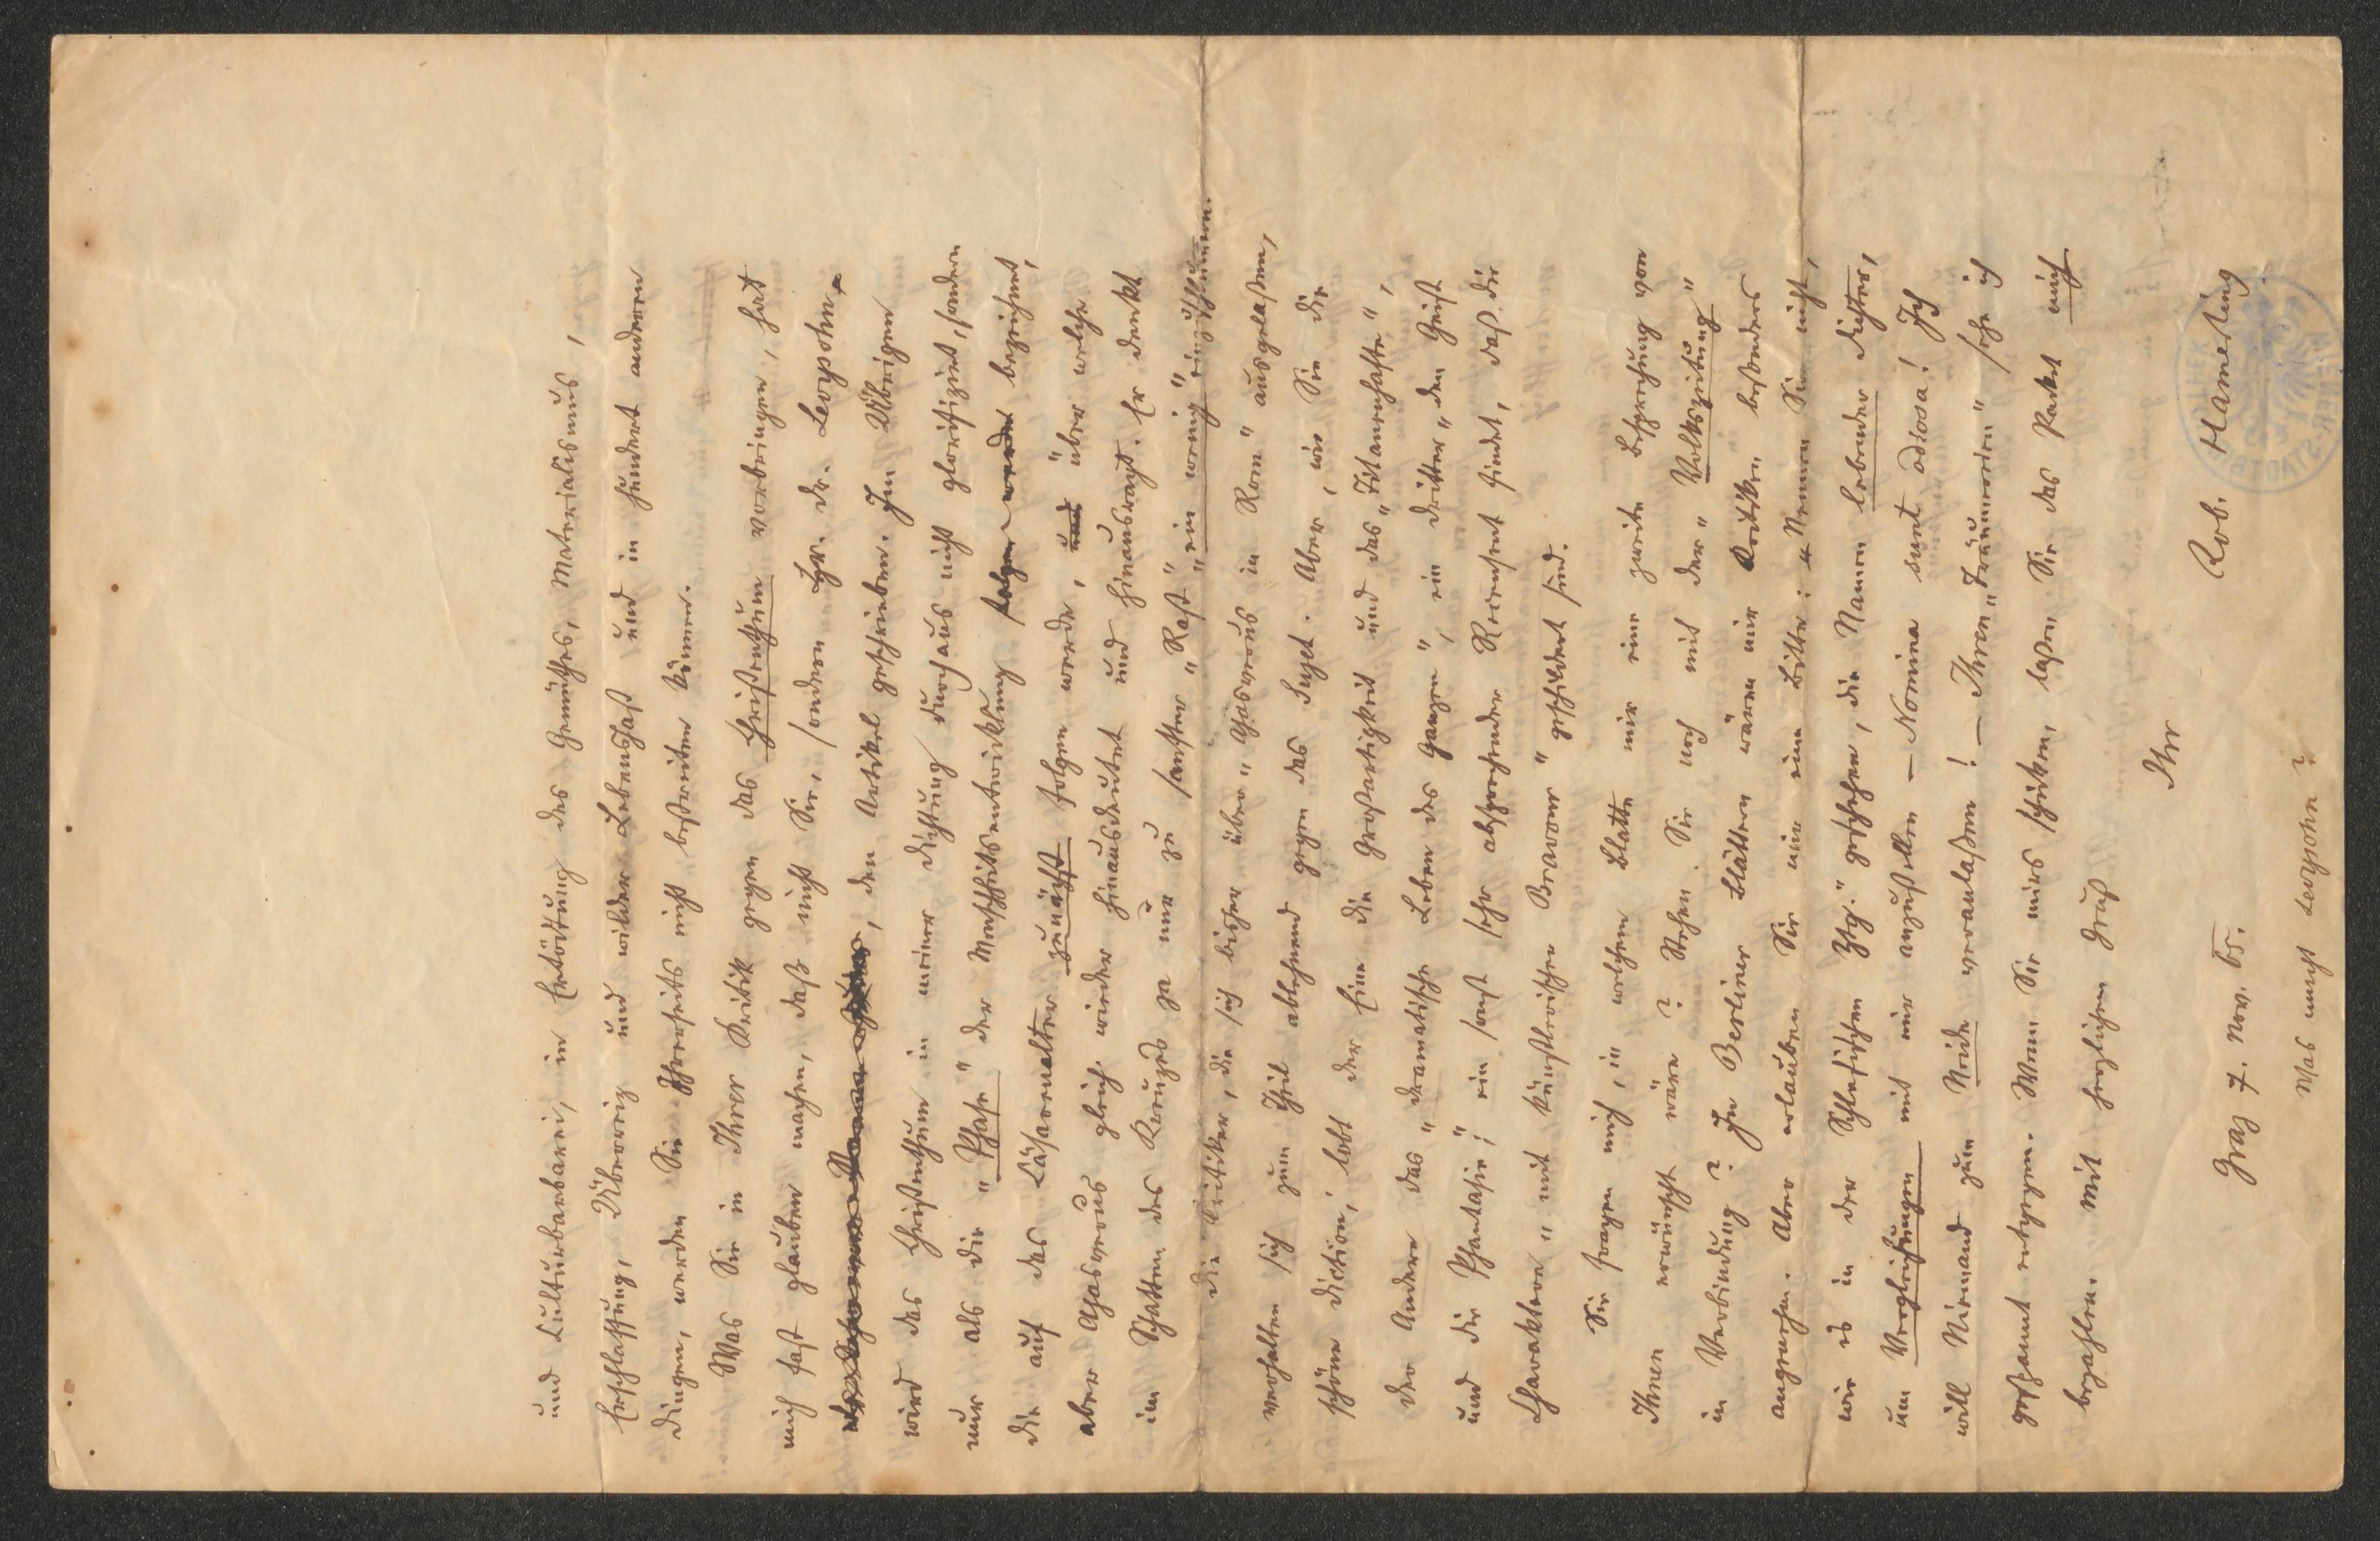 und Culturbarbarei, in Ertödtung des Gemüthes, Materialismus,
Erschlaffung, Überreiz und wilder Lebenshast und in hundert anderen
Dingen, werden Sie Ihrerseits nicht bestreiten können.
Was Sie in Ihrer Kritik gegen das Christenthum vorbringen, hat
mich fast glauben machen, daß nicht Sie, sondern Hr. Dr. Leopohn
, den Artikel geschrieben. Im Übrigen
wird das Christenthum in meiner Dichtung durchaus nicht glorifizirt, sondern
nur als die "Phase" der Menschheitsentwicklung bezeichnet,
die auf das Cäsarenalter zunächst folgen werde, und über welche
aber Ahasverus gleich wieder hinausdeutet und hinausragt. Er denkt
im Schatten des Kreuzes ja nur zu sanfter "Rast" "ein wenig" einzuschlummern.
Die Critiker, die sich bisher über "Ahasverus in Rom" ausgelaßen,
verhalten sich zum Theil ablehnend gegen das Sujet. Aber, wie Sie die
schöne Diction, lobt der Eine die Großartigkeit und das "Titanenhafte",
der Andere das "dramatische Leben des Ganzen", ein Dritter "den Geist
und die Phantasie;" ein sonst sehr absprechender Recensent findet, daß die
Charaktere "mit künstlerischer Bravour" geschildert sind.
Sie fragen mich, in welchem Blatte mir eine zweite Besprechung von
Ihnen erwünscht wäre? Stehen Sie noch mit der "Volkszeitung"
in Verbindung? In Berliner Blättern wären mir Kritiken besonders
angenehm. Aber erlauben Sie mir eine Bitte: Nennen Sie nicht,
wie es in der Schlesischen Ztg." geschehen, die Namen lebender Dichter,
um Vergleichungen mit mir anzustellen — Nomina sunt odiosa! Ich
will Niemand zum Neide veranlaßen! — Ihren "Träumereien" sehe ich
gespannt entgegen. Wenn Sie mirs schicken, laßen Sie das Packet mich
bezahlen. Mit herzlichem Gruß
Ihr
Rob. Hamerling
Graz 7. Nov. 65.
Was macht Leopohn?